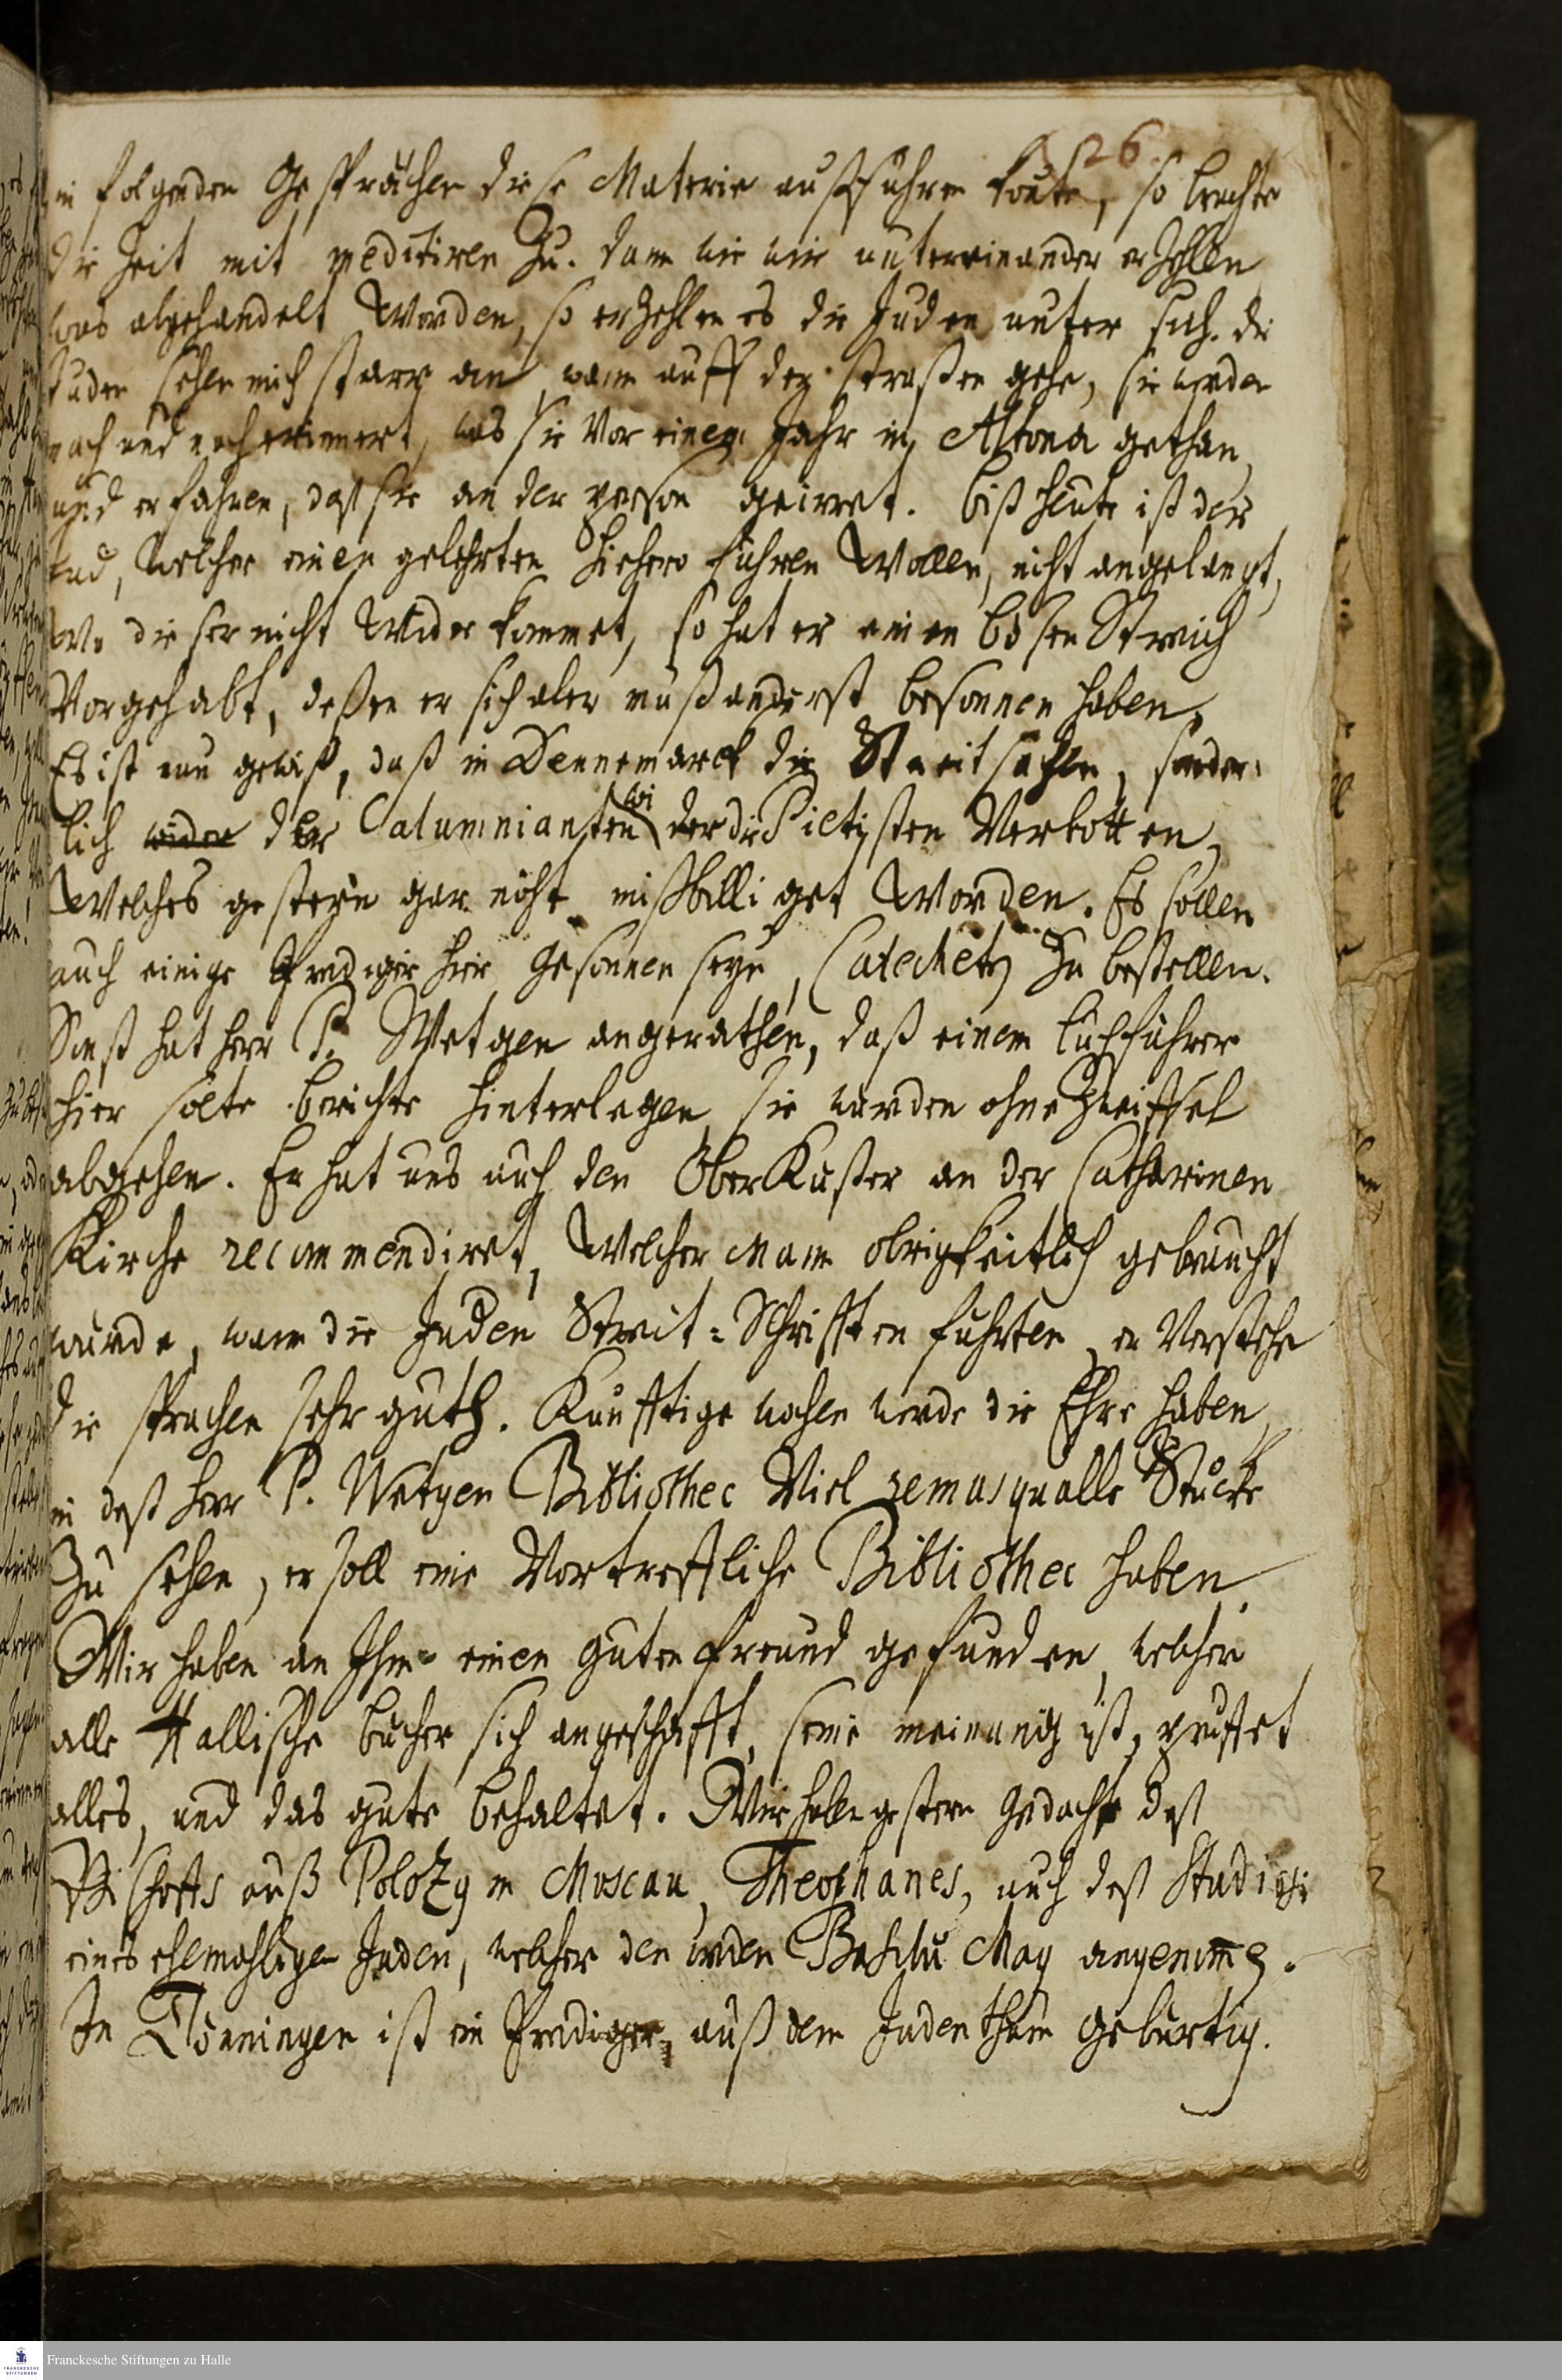 526.
in folgenden Gesprächen diese Materie außführen konte, so brachte
die Zeit mit meditiren zu. dann wie wir untereinander erzehlen
was abgehandelt worden, so erzehlen es die Juden unter sich. die
Juden sehen mich starr an, wann auff der strassen gehe, sie werden
nach und nach erinnert, was sie vor einem Jahr in Altona gethan,
und erfahren, daß sie an der person geirret. biß heute ist der
Jud, welcher einen gelehrten hiehero führen wollen, nicht angelangt,
wo dieser nicht wider kommet, so hat er einen bösen Streich
vorgehabt, deßen er sich aber muß anderst besonnen haben.
Es ist nun gewiß, daß in Dennemarck die Streitsachen, sonder-
lich wider der Calumnianten wi der die Pietisten verbotten,
welches gestern gar nicht mißbilliget worden. Es sollen
auch einige Prediger hier gesonnen seyn, Catecheten zu bestellen.
Sonst hat Herr P. Wetgen angerathen, daß einem buchführer
hier solte berichte hinterlegen, sie wurden ohne Zweiffel
abgehen. Er hat uns auch den OberKuster an der Catharinen
Kirche recommendiret, welcher Mann obrigkeitlich gebraucht
wurde, wann die Juden Streit-Schrifften fuhrten, er verstehe
die sprachen sehr guth. Kunfftige wochen werde die Ehre haben,
in deß Herr P. Wetgen Bibliothec viel remarquable Stucke
zu sehen, er soll eine vortreffliche Bibliothec haben.
Wir haben an Ihm einen guten freund gefunden, welcher
alle Hallische bucher sich angeschafft, seine meinung ist, pruffet
alles, und das gute behaltet. Wir haben gestern gedacht deß
Bischoffs auß Polozy in Moscau, Theophanes, auch deß Studiosi
eines ehemahligen Juden, welcher den orden Basilii Mag angenom̄en.
In Tönningen ist ein Prediger, auß dem Judenthum geburtig.
Franckesche Stiftungen zu Halle